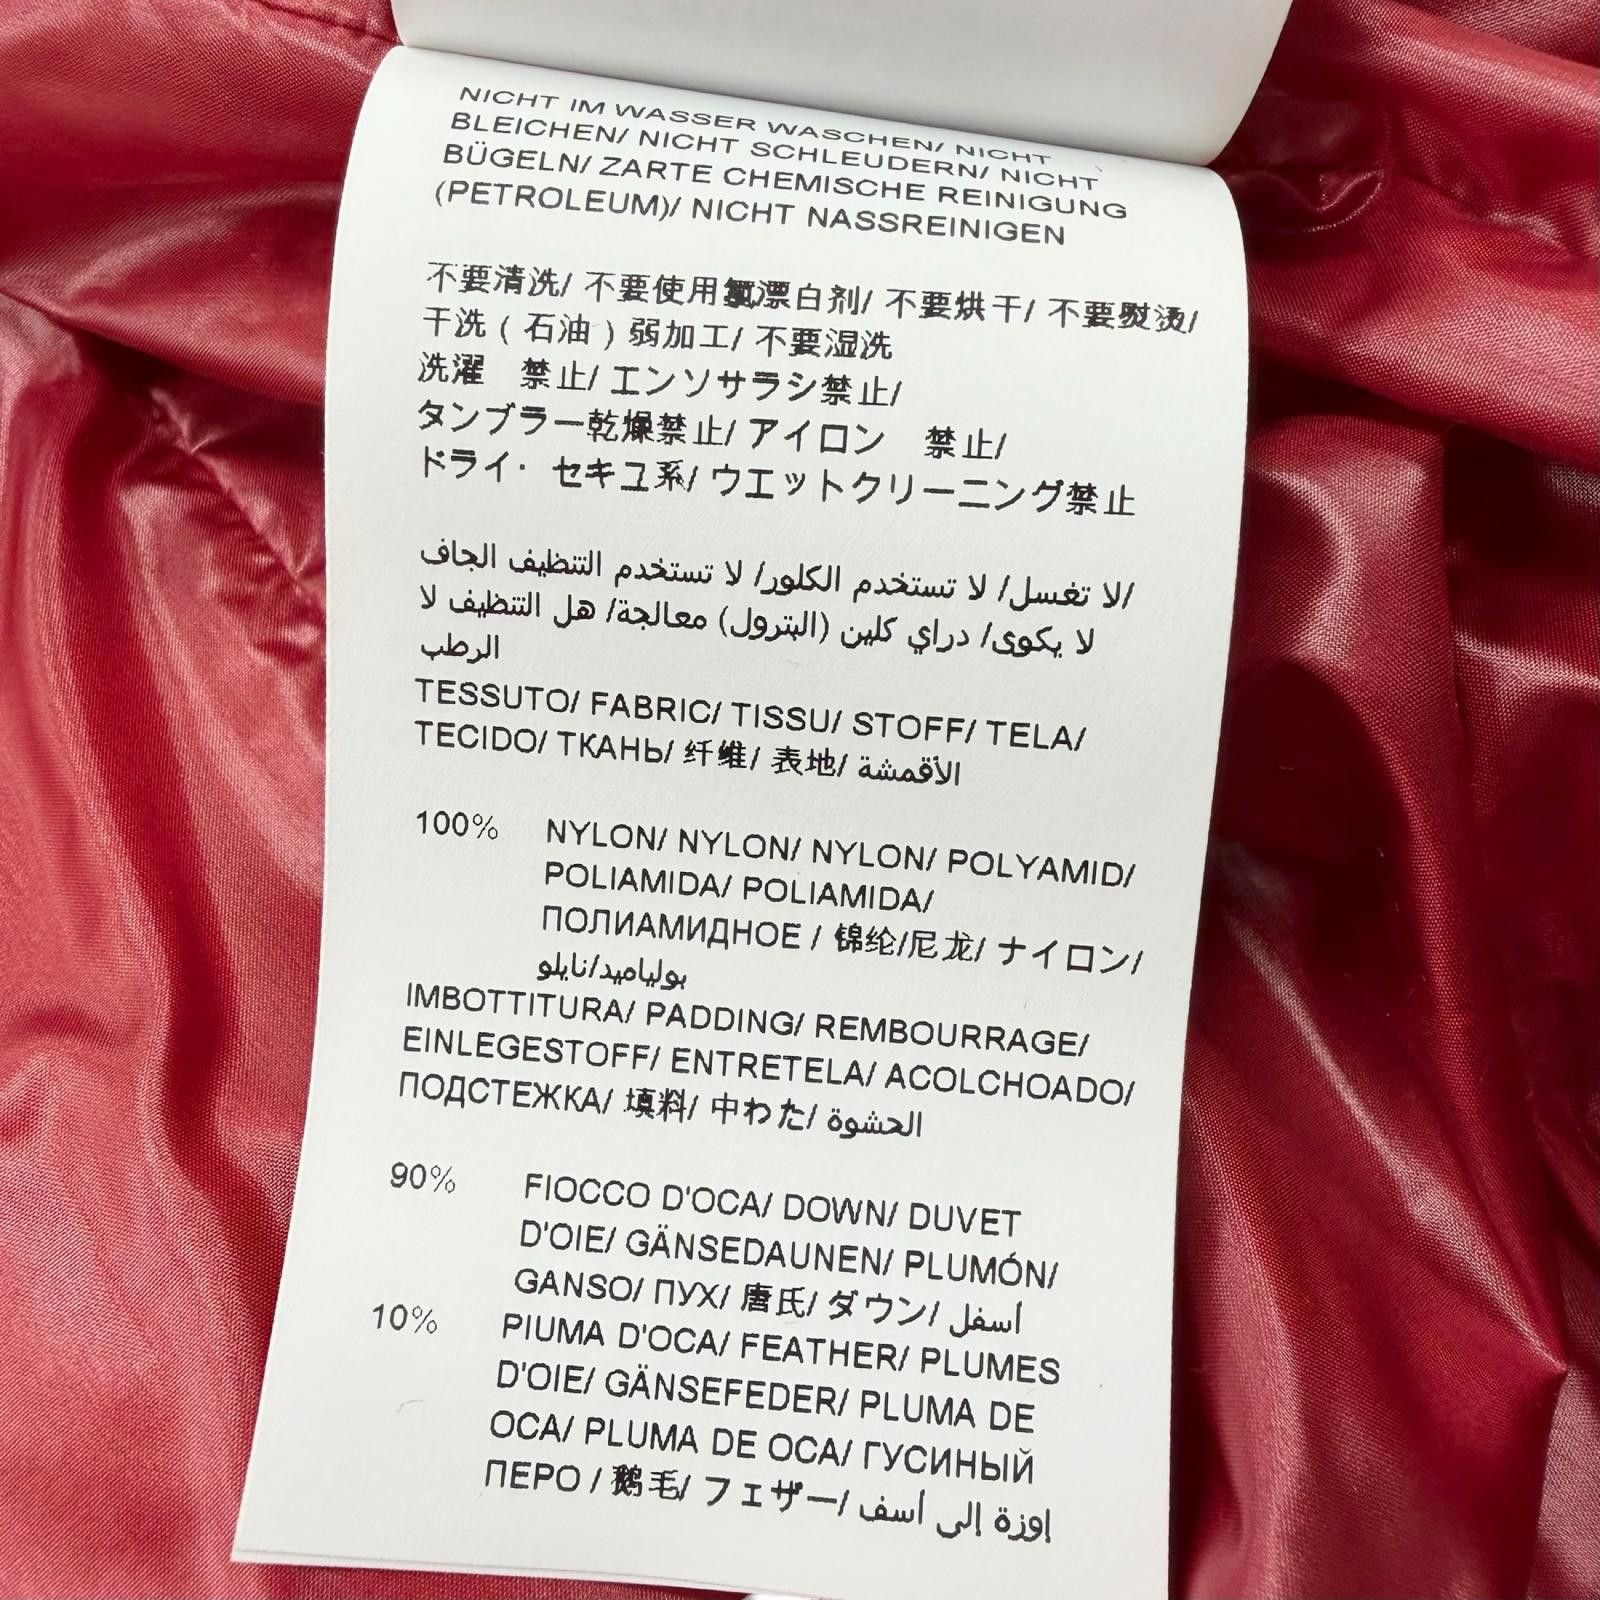 NICHT IM WASSER WASCHEN/ NICHT
BLEICHEN/ NICHT SCHLEUDERN/ NICHT
BÜGELN/ ZARTE CHEMISCHE REINIGUNG
(PETROLEUM)/ NICHT NASSREINIGEN
不要清洗/ 不要使用氯漂白剂/ 不要烘干/ 不要熨烫/
干洗 ( 石油 ) 弱加工/ 不要湿洗
洗濯　禁止/ エンソサラシ禁止/
タンブラー乾燥禁止/ アイロン　禁止/
ドライ· セキユ系/ ウエットクリーニング禁止
لا تغسل/ لا تستخدم الكلور/ لا تستخدم التنظيف الجاف/
لا يكوى/ دراي كلين (البترول) معالجة/ هل التنظيف لا
الرطب
TESSUTO/ FABRIC/ TISSU/ STOFF/ TELA/
TECIDO/ ТКАНЬ/ 纤维/ 表地/ الأقمشة
100% NYLON/ NYLON/ NYLON/ POLYAMID/
POLIAMIDA/ POLIAMIDA/
ПОЛИАМИДНОЕ / 锦纶/尼龙/ ナイロン/
بولياميد/نايلو
IMBOTTITURA/ PADDING/ REMBOURRAGE/
EINLEGESTOFF/ ENTRETELA/ ACOLCHOADO/
ПОДСТЕЖКА/ 填料/ 中わた/ الحشوة
90% FIOCCO D'OCA/ DOWN/ DUVET
D'OIE/ GÄNSEDAUNEN/ PLUMÓN/
GANSO/ ПУХ/ 唐氏/ ダウン/ أسفل
10% PIUMA D'OCA/ FEATHER/ PLUMES
D'OIE/ GÄNSEFEDER/ PLUMA DE
OCA/ PLUMA DE OCA/ ГУСИНЫЙ
ПЕРО / 鹅毛/ フェザー/ إوزة إلى أسف